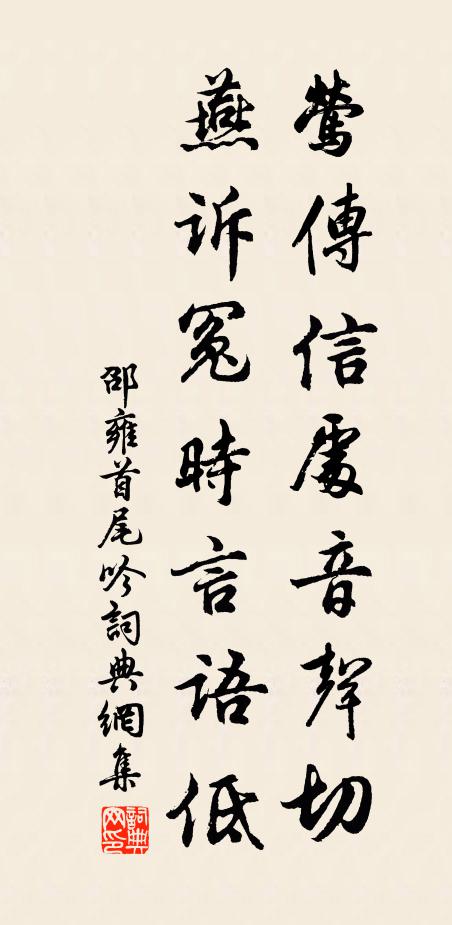 鶯傳信處音聲切
燕訴冤時言語低
邵雍首尾吟詞典網集
詞典網印